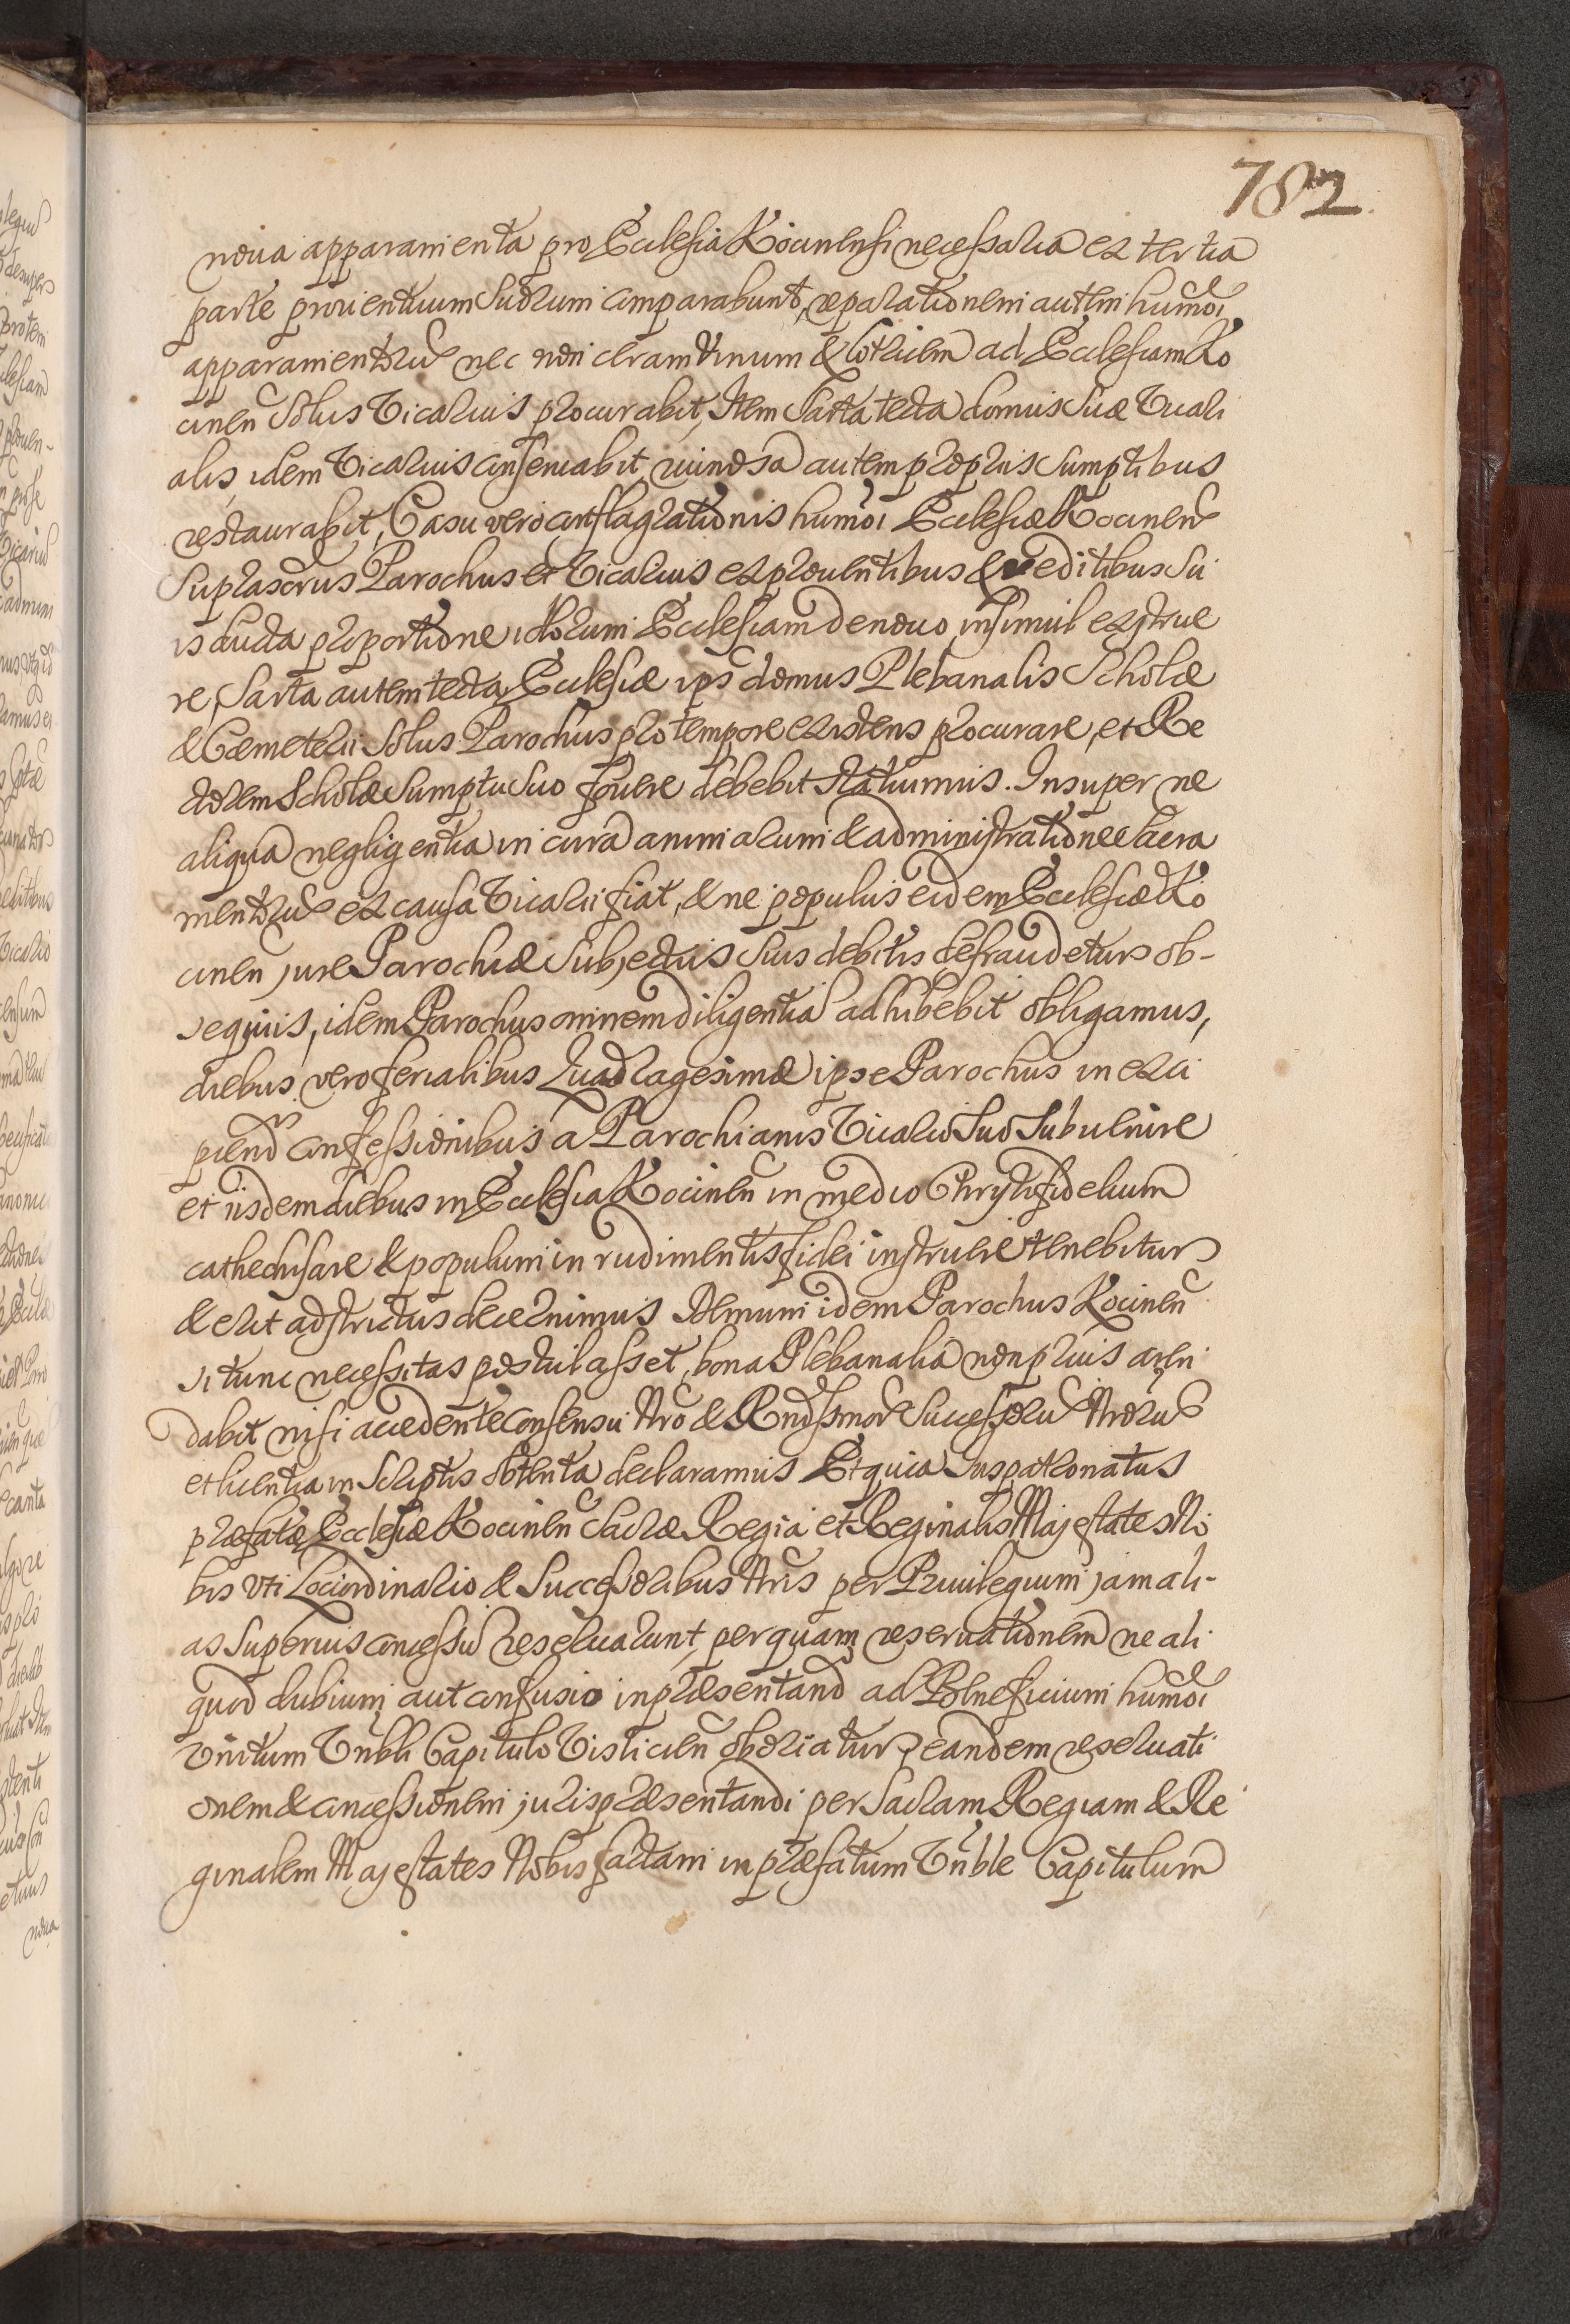 782
noua apparamenta pro Ecclesia Kocinensi necessaria ex tertia
parte prouientuum suorum comparabunt, reparationem autem humōi
apparamentorū nec non ceram Vinum & lotricem ad Ecclesiam Ko
cinen̄ Solus Vicarius procurabit, Item Sarta tecta domus suæ Vicari
alis, idem Vicarius conseruabit, ruinosa autem proprijs sumptibus
restaurabit, Casu vero conflagrationis humōi Ecclesiæ Kocinen̄
Suprascrus Parochus et Vicarius ex prouentibus & reditibus Su
is ducta proportione illorum Ecclesiam denouo insimul exstrue
re, Sarta autem tecta Ecclesiæ ips̄ domus Plebanalis Scholæ
& Cæmeterii Solus Parochus pro tempore existens procurare, et Re
ctorem Scholæ Sumptu Suo fouere debebit statuimus. Insuper ne
aliqua negligentia in cura animarum & administratione Sacra
mentorū ex causa Vicarii fiat, & ne populus eidem Ecclesiæ Ko
cinen̄ jure Parochiæ Subjectus Suis debitis defraudetur ob-
sequiis, idem Parochus omnem diligentia adhibebit obligamus,
diebus vero ferialibus Quadragesimæ ipse Parochus in exci
piend confessionibus a Parochianis Vicario Suo Subuenire
et iisdem diebus in Ecclesia Kocinen̄ in medio Chrystifidelium
cathechisare & populum in rudimentis fidei instruere tenebitur
& erit adstrictus decernimus Demum idem Parochus Kocinen̄
si tunc necessitas postulasset, bona Plebanalia non prius aren
dabit nisi accedente Consensu Nrō & Rndssmor Successorū Nrorū
et licentia in Scriptis obtenta declaramus Et quia Jus patronatus
præfatæ Ecclesiæ Kocinen̄ Sacræ Regia et Reginalis Majestates No
bis vti Lociordinario & Successoribus Nrīs per Priuilegium jam ali-
as Superius concessū reseruarunt, per quam reseruationem ne ali
quod dubium aut confusio in præsentand ad Beneficium humōi
vnitum Vnbli Capitulo Visticien̄ oboriatur, eandem reseruati
onem & concessionem juris præsentandi per Sacram Regiam & Re
ginalem Majestates Nobis factam in præfatum Vnble Capitulum